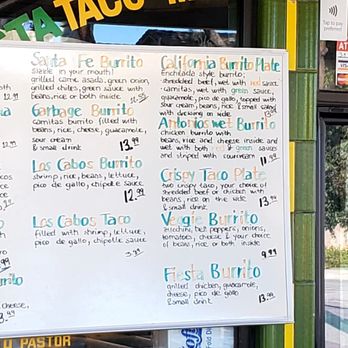 TACO
Santa Fe Burrito
suicide in your mouth!
grilled carne asada, green onion,
grilled chiles, green sauce with
beans, rice or both inside
12.99
Garbage Burrito
carnitas burrito filled with
beans, rice, cheese, guacamole,
sour cream
& small drink
13.99
Los Cabos Burrito
shrimp, rice, beans, lettuce,
pico de gallo, chipotle sauce
12.99
Los Cabos Taco
filled with shrimp, lettuce,
pico de gallo, chipotle sauce
3.99
California Burrito Plate
Enchilada style burrito,
shredded beef, wet with red sauce
- carnitas, wet with green sauce,
guacamole, pico de gallo, topped with
sour cream, beans, rice & small drink
13.99
Antonias wet Burrito
chicken burrito with
beans, rice and cheese inside and
wet with both red & green sauces
and striped with sourcream
11.99
Crispy Taco Plate
two crispy taco, your choice of
shredded beef or chicken with
beans, rice on the side
& small drink
13.99
Veggie Burrito
zucchini, bell peppers, onions,
tomatoes, cheese & your choice
of bean, rice or both inside
9.99
Fiesta Burrito
grilled chicken, guacamole,
cheese, pico de gallo
& small drink
13.99
cheese,
PASTOR
Tap to
pay
preferred